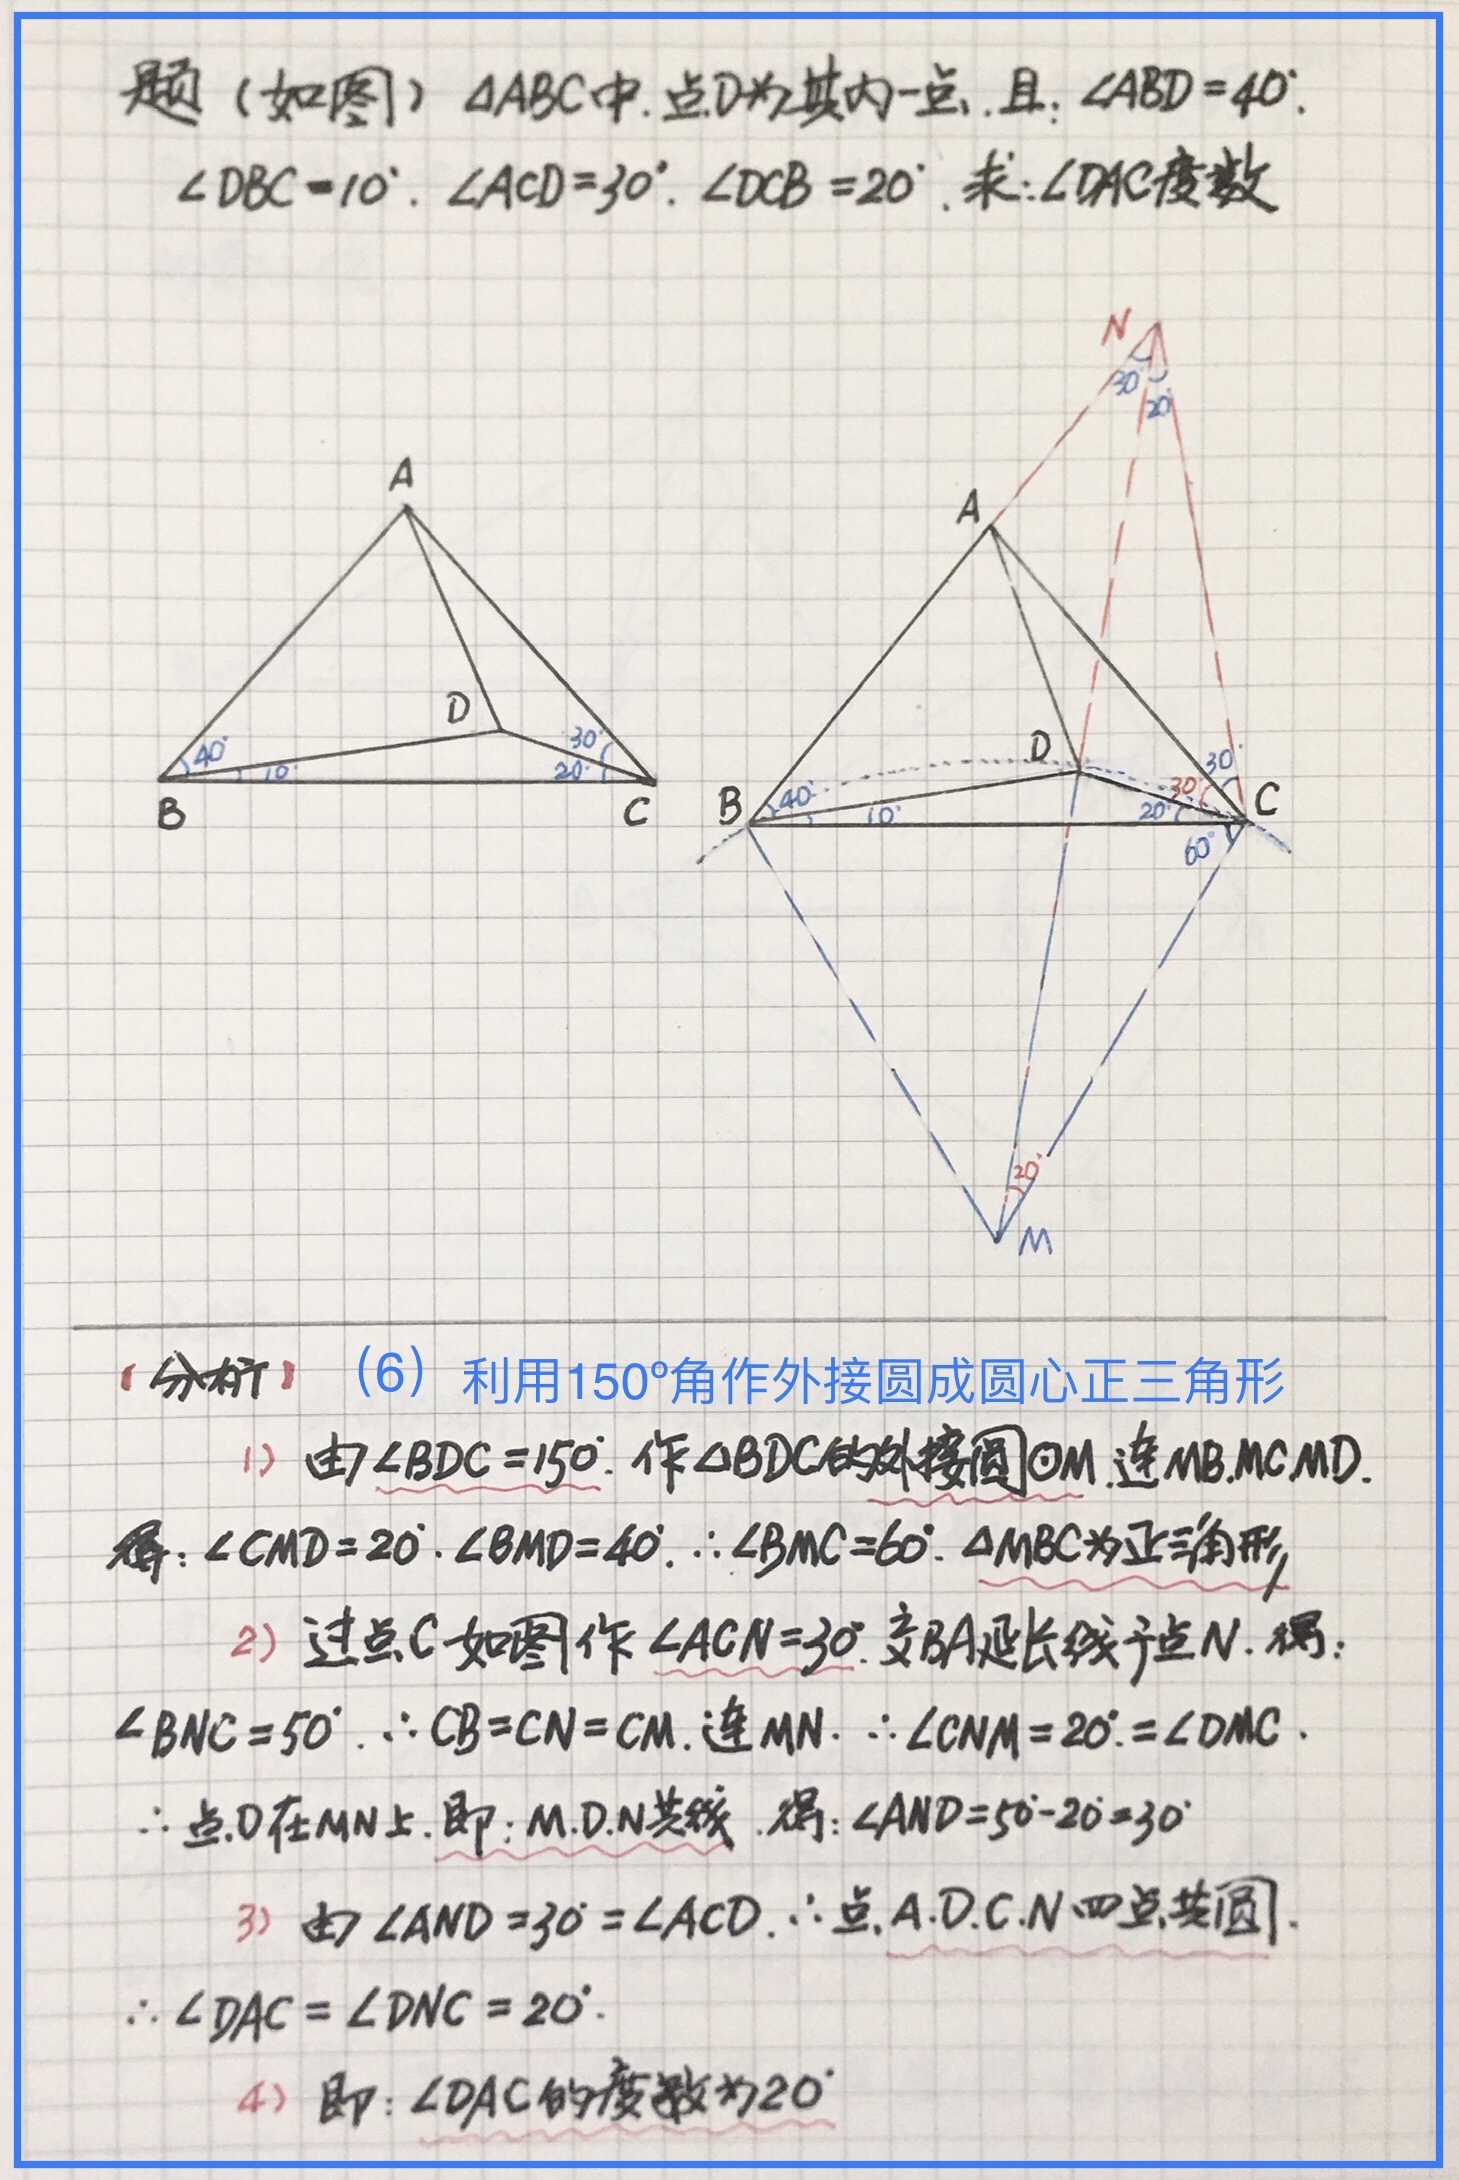 题（如图）△ABC中.点D为其内一点.且:∠ABD=40°.
∠DBC=10°.∠ACD=30°.∠DCB=20°.求:∠DAC度数
N
30°
20°
A
A
D
40°
10°
30°
20°
B
C
D
B
40°
10°
30°
30°
20°
C
60°
20°
M
【分析】（6）利用150°角作外接圆成圆心正三角形
1）由∠BDC=150°.作△BDC的外接圆⊙M.连MB.MC.MD.
得:∠CMD=20°.∠BMD=40°.∴∠BMC=60°.△MBC为正三角形
2）过点C如图作∠ACN=30°.交BA延长线于点N.得:
∠BNC=50°.∴CB=CN=CM.连MN.∴∠CNM=20°=∠DMC.
∴点D在MN上.即:M.D.N共线.得:∠AND=50°-20°=30°
3）由∠AND=30°=∠ACD.∴点.A.D.C.N四点共圆.
∴∠DAC=∠DNC=20°.
4）即:∠DAC的度数为20°